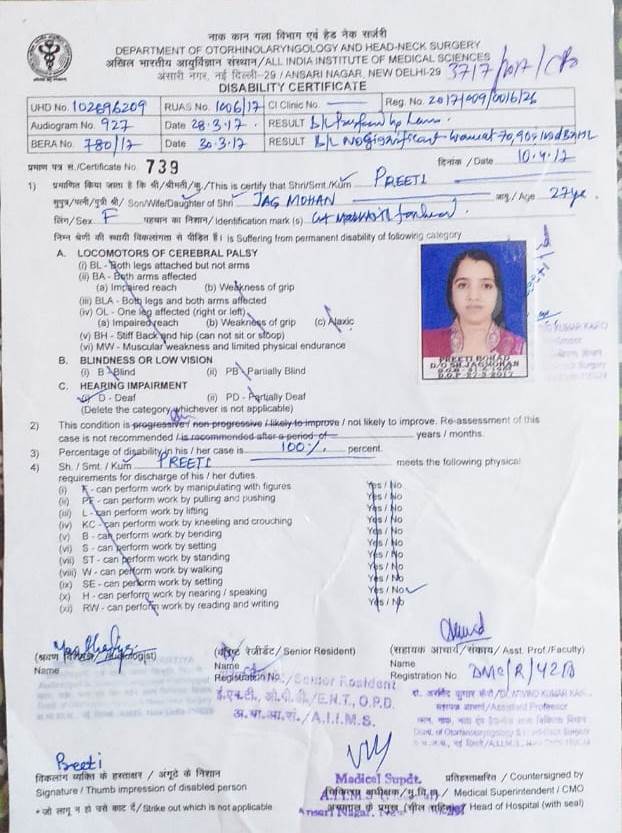 नाक कान गला विभाग एवं हैड नैक सर्जरी
DEPARTMENT OF OTORHINOLARYNGOLOGY AND HEAD-NECK SURGERY
अखिल भारतीय आयुर्विज्ञान संस्थान/ALL INDIA INSTITUTE OF MEDICAL SCIENCES
अंसारी नगर, नई दिल्ली-29 / ANSARI NAGAR, NEW DELHI-29
DISABILITY CERTIFICATE
UHD No. 102696209 RUAS No. 1006/17 CI Clinic No. Reg. No. 2017/009/0016/26
Audiogram No. 927 Date 28.3.17. RESULT B/L Profound hp Loss.
BERA No. 780/17 Date 30.3.17 RESULT B/L No Significant
प्रमाण पत्र सं./Certificate No. 739 दिनांक / Date 10.4.17
1) प्रमाणित किया जाता है कि श्री/श्रीमती/कु./This is certify that Shri/Smt./Kum PREETI
सुपुत्र/पत्नी/पुत्री श्री/ Son/Wife/Daughter of Shri JAG MOHAN आयु / Age 27 yr.
लिंग/Sex F पहचान का निशान/ Identification mark (s) Cut mark on forehead.
निम्न श्रेणी की स्थायी विकलांगता से पीड़ित हैं। is Suffering from permanent disability of following category
A. LOCOMOTORS OF CEREBRAL PALSY
(i) BL - Both legs attached but not arms
(ii) BA - Both arms affected
(a) Impaired reach (b) Weakness of grip
(iii) BLA - Both legs and both arms affected
(iv) OL - One leg affected (right or left)
(a) Impaired reach (b) Weakness of grip (c) Ataxic
(v) BH - Stiff Back and hip (can not sit or stoop)
(vi) MW - Muscular weakness and limited physical endurance
B. BLINDNESS OR LOW VISION
(i) B - Blind (ii) PB - Partially Blind
C. HEARING IMPAIRMENT
(i) D - Deaf (ii) PD - Partially Deaf
(Delete the category whichever is not applicable)
PREETI BOHAD
D/O SH.JAGMOHAN
2) This condition is progressive / non progressive / likely to improve / not likely to improve. Re-assessment of this
case is not recommended / is recommended after a period of years / months.
3) Percentage of disability in his / her case is 100% percent.
4) Sh. / Smt. / Kum PREETI meets the following physical
requirements for discharge of his / her duties.
(i) F - can perform work by manipulating with figures Yes / No
(ii) PF - can perform work by pulling and pushing Yes / No
(iii) L - can perform work by lifting Yes / No
(iv) KC - can perform work by kneeling and crouching Yes / No
(v) B - can perform work by bending Yes / No
(vi) S - can perform work by setting Yes / No
(vii) ST - can perform work by standing Yes / No
(viii) W - can perform work by walking Yes / No
(ix) SE - can perform work by setting Yes / No
(x) H - can perform work by nearing / speaking Yes / No
(xi) RW - can perform work by reading and writing Yes / No
(वरिष्ठ रेजीडेंट / Senior Resident) (सहायक आचार्य/संकाय/ Asst. Prof./Faculty)
Name Name Name
Registration No. Registration No DMC/R/4213
Senior Resident
ई.एन.टी., ओ.पी.डी./E.N.T., O.P.D.
अ.भा.आ.सं./A.I.I.M.S.
Preeti
विकलांग व्यक्ति के हस्ताक्षर / अंगूठे के निशान
Signature / Thumb impression of disabled person
* जो लागू न हो उसे काट दें/Strike out which is not applicable
Medical Supdt. प्रतिहस्ताक्षरित / Countersigned by
चिकित्सा अधीक्षक/मु.चि.अ./ Medical Superintendent / CMO
अस्पताल के प्रमुख (सील सहित)/ Head of Hospital (with seal)